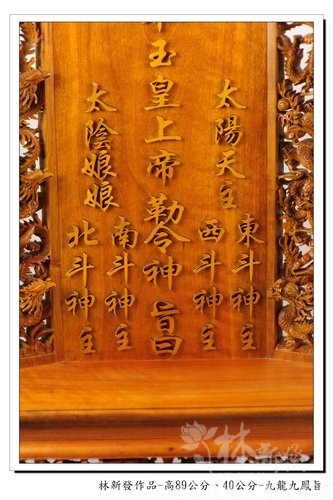 太陽天主
東斗神主
西斗神主
玉皇上帝勒令神旨
太陰娘娘
南斗神主
北斗神主
林新發作品-高89公分、40公分-九龍九鳳旨